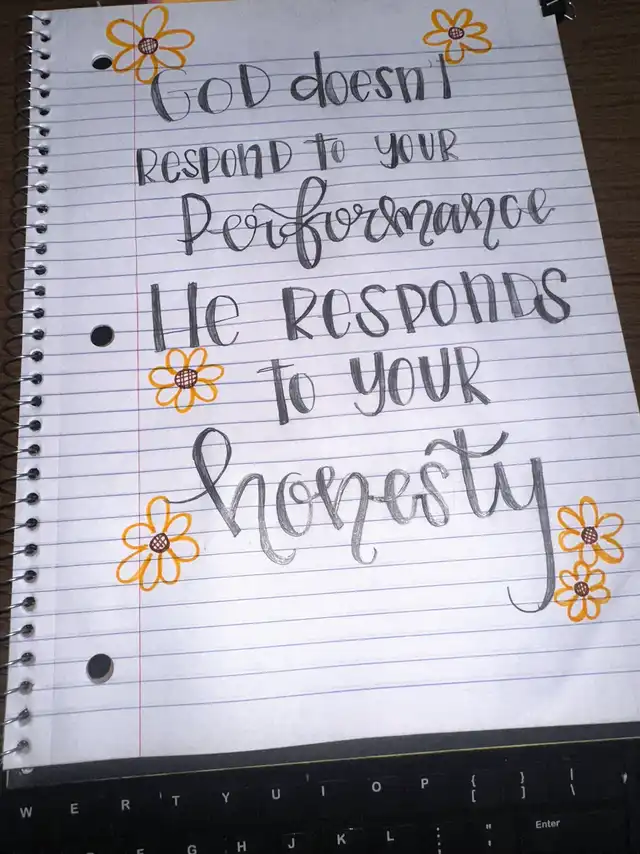 GOD doesn't
RESPOND to YOUR
Performance
He RESPONDS
to YOUR
honesty
W E R T Y U I O P { [ } ] | \
F G H J K L : ; " ' Enter